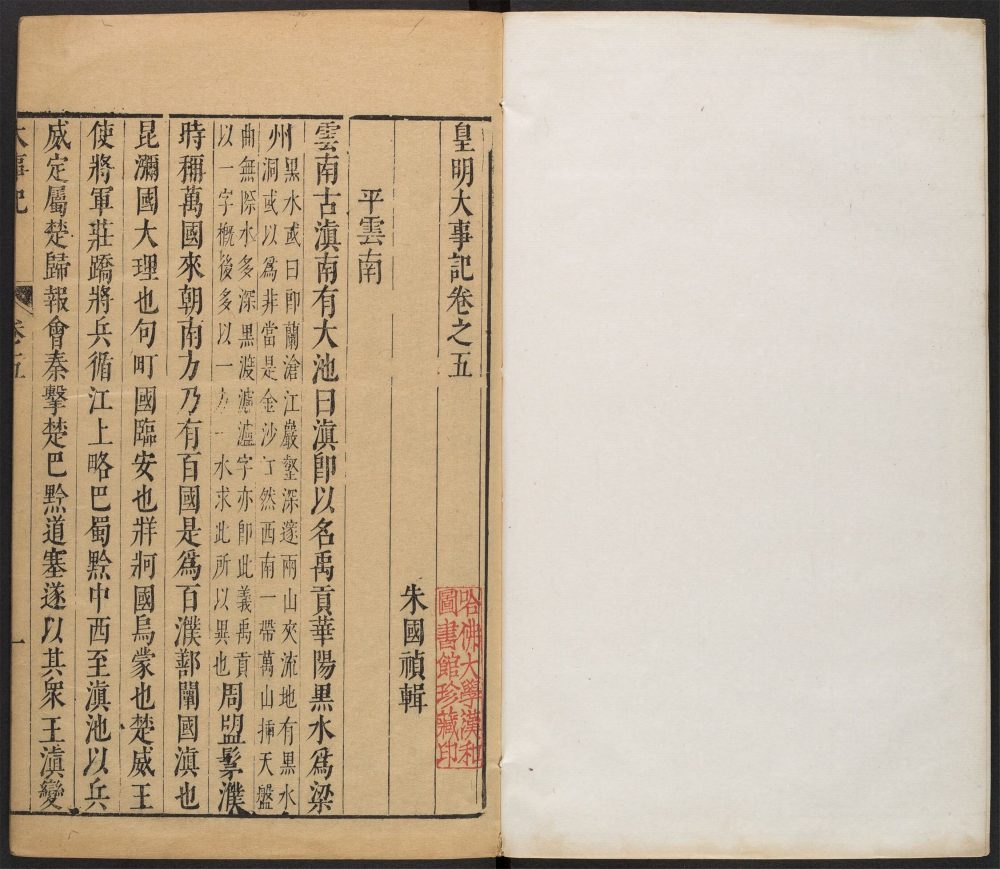 皇明大事記卷之五
朱國禎輯
哈佛大學漢和
圖書館珍藏印
平雲南
雲南古滇南有大池曰滇卽以名禹貢華陽黑水爲梁
州
黑水或曰卽蘭滄江嚴壑深邃兩山夾流地有黑水
洞或以爲非當是金沙江然西南一帶萬山揷天盤
曲無際水多深黑渡瀘瀘字亦卽此義禹貢
以一字概後多以一方一水求此所以異也
周盟髳濮
時稱萬國來朝南方乃有百國是爲百濮鄯闡國滇也
昆瀰國大理也句町國臨安也牂牁國烏蒙也楚威王
使將軍莊蹻將兵循江上略巴蜀黔中西至滇池以兵
威定屬楚歸報會秦擊楚巴黔道塞遂以其衆王滇變
大事記
卷五
一